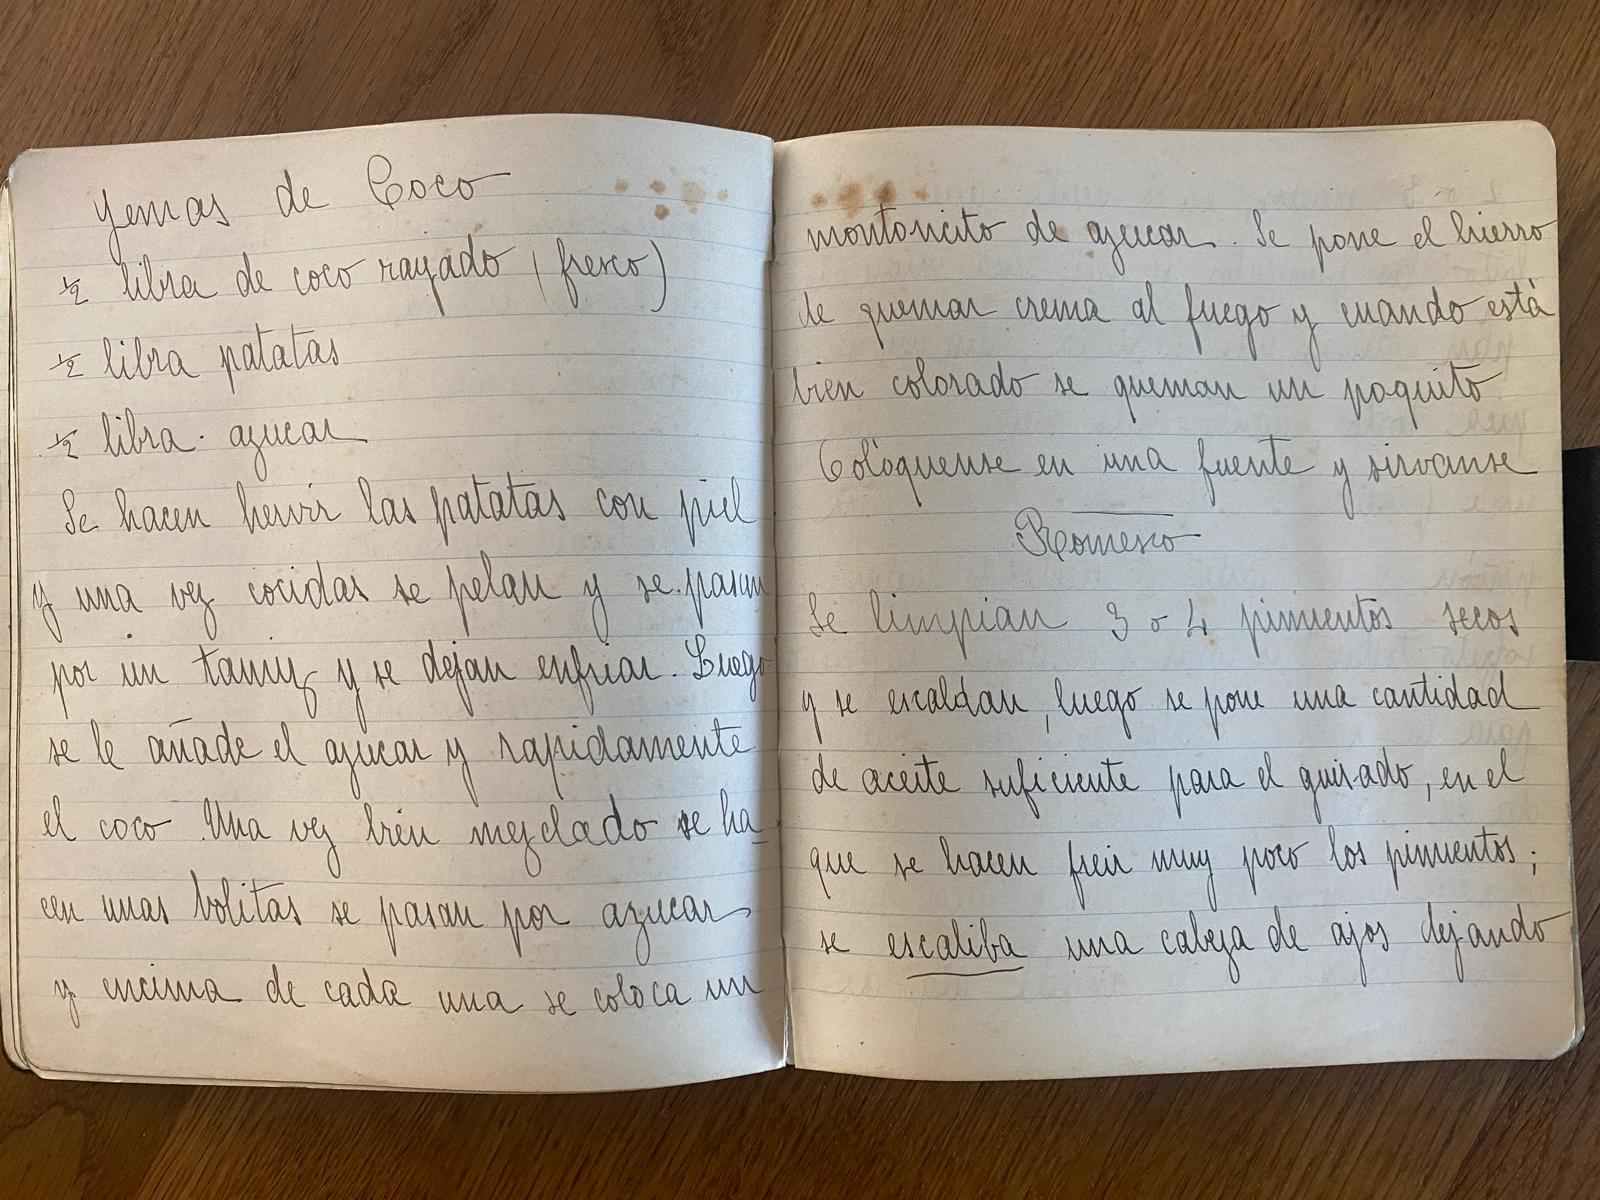 Yemas de Coco
½ libra de coco rayado (fresco)
½ libra patatas
½ libra. azucar
Se hacen hervir las patatas con piel
y una vez cocidas se pelan y se pasan
por un tamiz y se dejan enfriar. Luego
se le añade el azucar y rapidamente
el coco. Una vez bien mezclado se ha-
cen unas bolitas se pasan por azucar
y encima de cada una se coloca un
montoncito de azucar. Se pone el hierro
de quemar crema al fuego y cuando está
bien colorado se queman un poquito
Colóquense en una fuente y sirvanse
Romesco
Se limpian 3 o 4 pimientos secos
y se escaldan, luego se pone una cantidad
de aceite suficiente para el guisado, en el
que se hacen freir muy poco los pimientos;
se escaliba una cabeza de ajos dejando